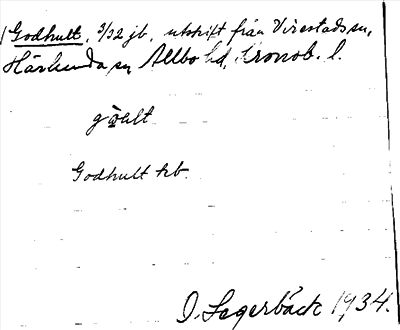 Godhult, 3/32 jb, utskift från Virestads sn,
Härlunda sn Allbo hd, Kronob. l.
Godhult kb.
J. Sagerbäck 1934.